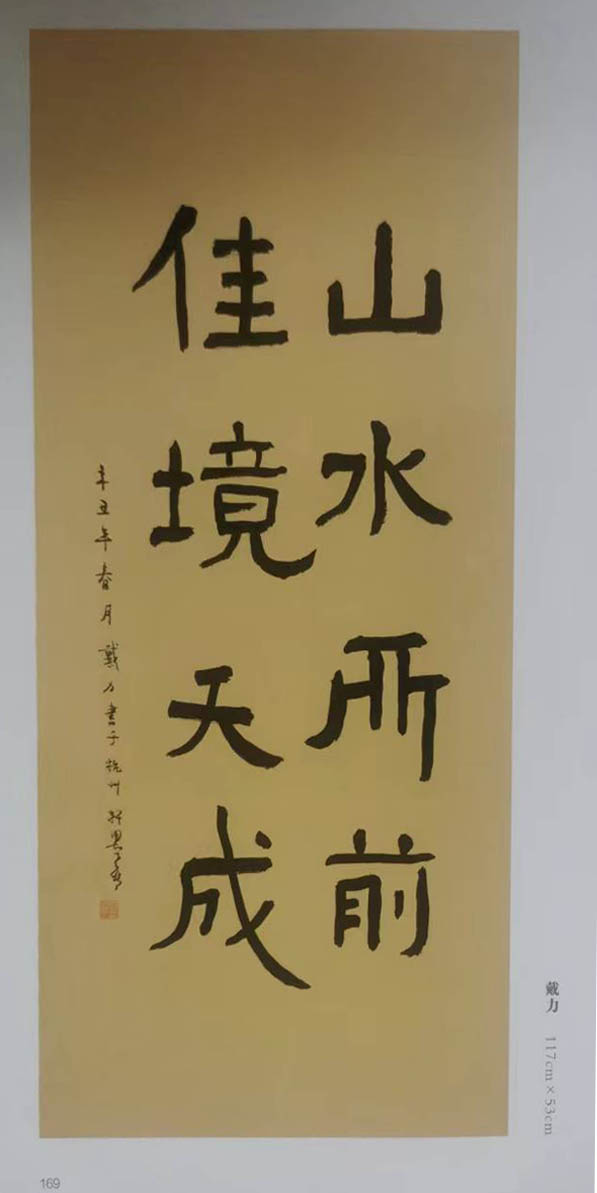 山水所前
佳境天成
辛丑年春月戴力书于杭州
戴力 117cm×53cm
169